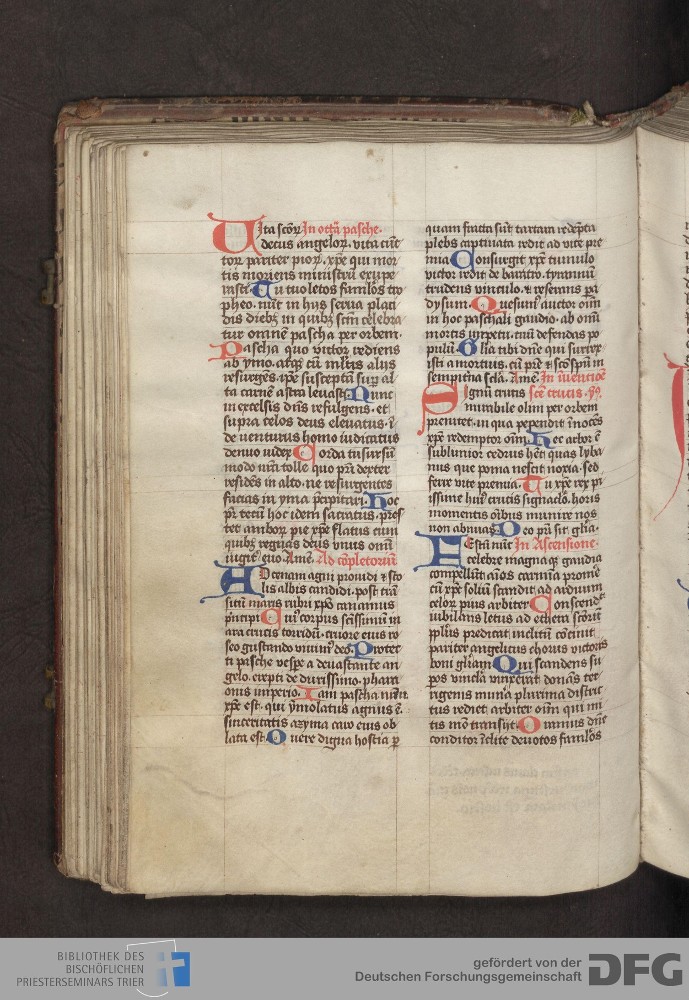 Vita scōꝝ In octā pasche.
decus angeloꝝ. vita cūc
toꝝ pariter pioꝝ. xp̄e qui mor
tis moriens ministrū exupe
rasti. Tu tuo letos famlos tro
pheo. nūc in hijs serua placi
dis diebꝫ in quibꝫ scm̄ celebra
tur omne pascha per orbem.
Pascha quo victor rediens
ab ymo. atqꝫ cū mltis alijs
resurgēs. ip̄e susceptā suꝑ al
ta carnē astra leuasti. Nunc
in excelsis dn̄s refulgens. et
supra celos deus eleuatus. ī
de venturus homo iudicatus
denuo iudex. Corda tu sursū
modo nūc tolle quo pr̄i dexter
resides in alto. ne resurgentes
facias in yma p̄cipitari. Hoc
pr̄ tecū hoc idem sacratus. pres
tet amboꝝ pie xp̄e flatus cum
quibꝫ regnas deus vnus omī
iugit̄ euo. Amē. Ad cōpletoriū
AD cenam agni prouidi ⁊ sto
lis albis candidi. post trā
situ maris rubri xp̄o canamus
p̄ncipi. Cui' corpus scissimū in
ara crucis torridū. cruore eius ro
seo gustando viuim' deo. Protec
ti pasche vespe a deuastante an
gelo. erepti de durissimo. phara
onis imperio. Iam pascha nr̄m
xp̄c est. qui ymolatus agnus ē.
sinceritatis azyma caro eius ob
lata est. O vere digna hostia ꝑ
quam fracta sūt tartara redēpta
plebs captiuata redit ad vite pre
mia. Consurgit xp̄c tumulo
victor redit de baratro. tyrannū
trudens vinculo. ⁊ reserans pa
dysum. Quesum' auctor oīm
in hoc paschali gaudio. ab omī
mortis impetu. tuū defendas po
pulū. Glīa tibi dn̄e qui surrex
isti a mortuis. cū pr̄e ⁊ scō sp̄u in
sempiterna scl̄a. Amē. In inuencōe
Signū crucis sc̄e crucis. ym̄9
mirabile olim per orbem
prenitet. in qua pependit īnocēs
xp̄c redemptor oīm. Hec arbor ē
sublimior cedrus hēt quas lyba
nus que poma nescit noxia. sed
ferre vite premia. Tu xp̄e rex pi
issime hui' crucis signaclo. horis
momentis oībus munire nos
non abnuas. Deo pr̄i sit glīa.
Festū nūc In Ascensione.
celebre magnaqꝫ gaudia
compellūt aīos carmīa promē
cū xp̄c soliū scandit ad arduum
celoꝝ pius arbiter. Conscendit
iubilans letus ad ethera scōrū
pplūs predicat inclitū cōcinit
pariter angelicus chorus victoris
boni glīam. Qui scandens su
pos vincla vinxerat donās ter
rigenis munīa plurima distric
tus rediet arbiter oīm qui mi
tis mō transijt. Oramus dn̄e
conditor īclite deuotos famlos
BIBLIOTHEK DES
BISCHÖFLICHEN
PRIESTERSEMINARS TRIER
gefördert von der
Deutschen Forschungsgemeinschaft
DFG